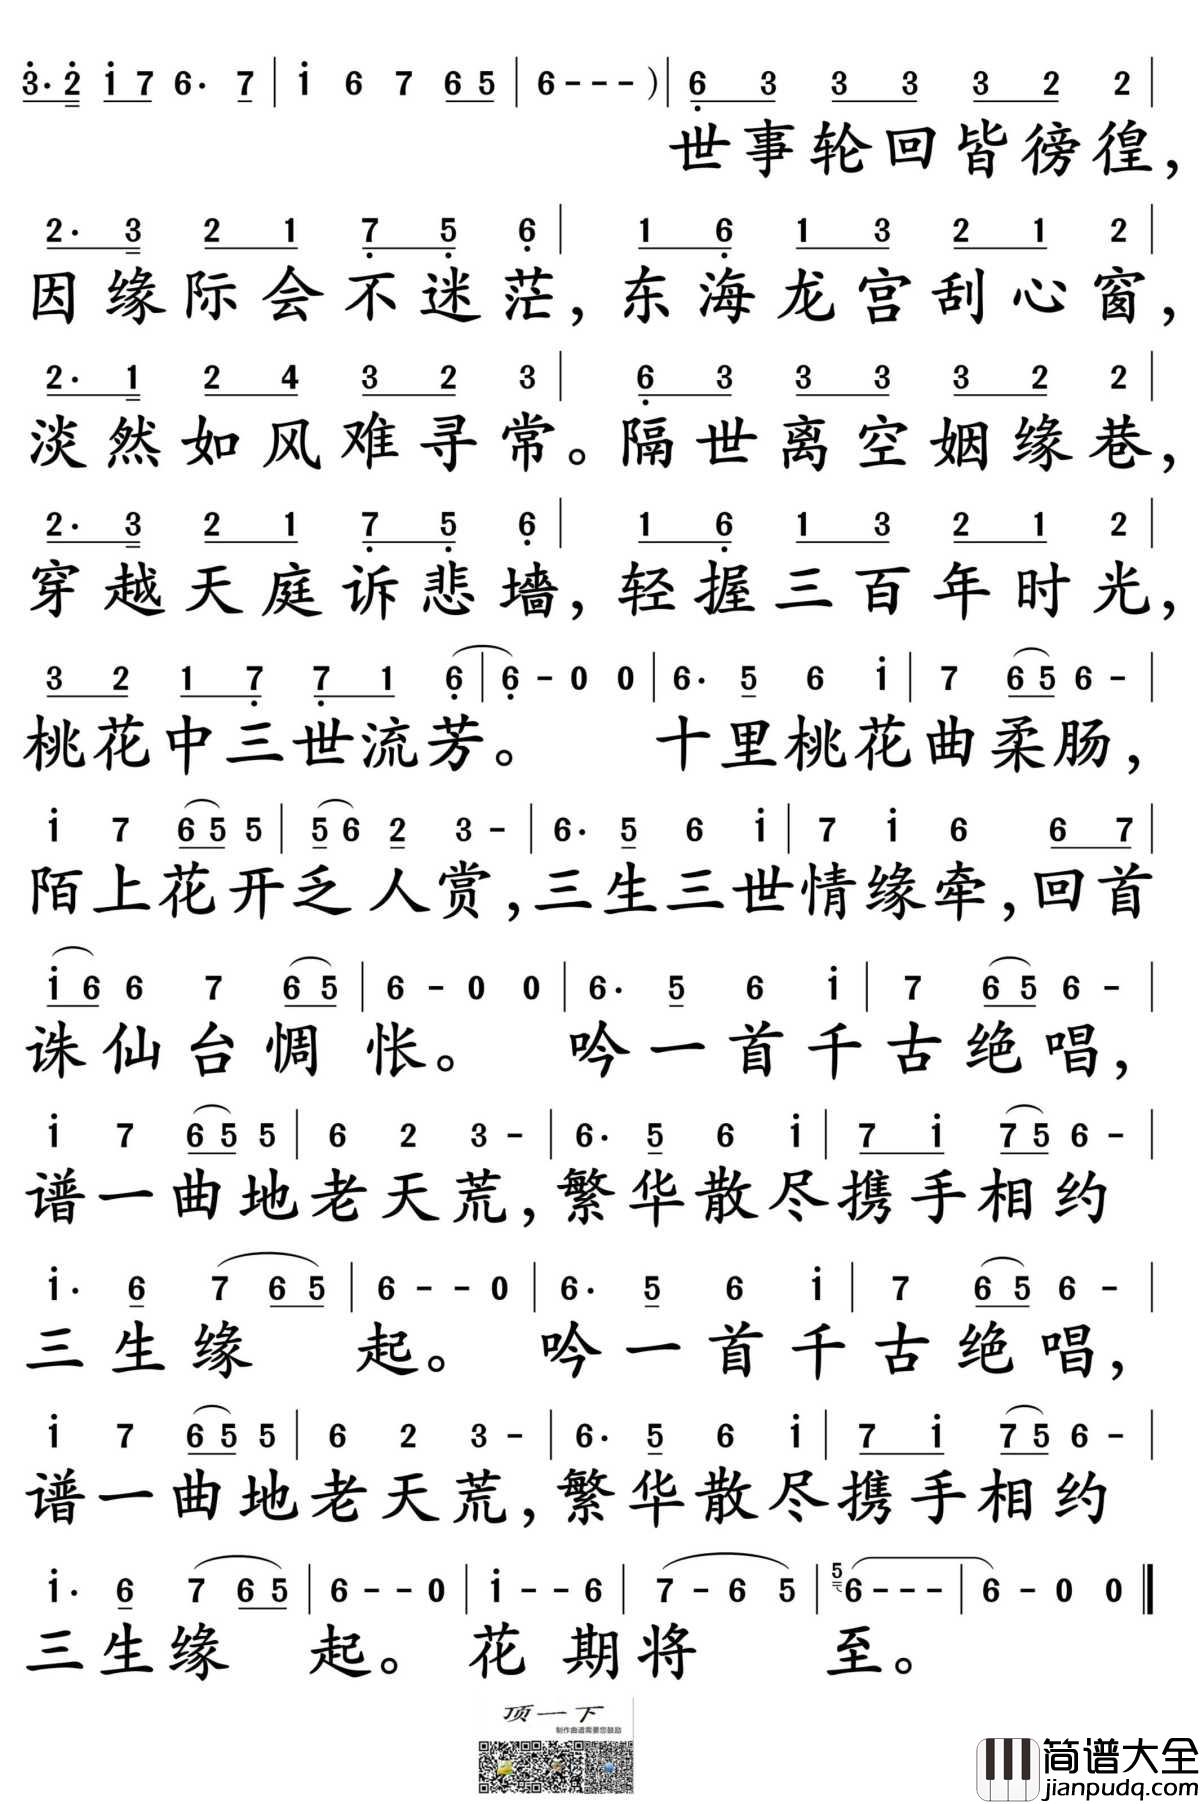 3. 2 1 7 6. 7 | 1 6 7 6 5 | 6 - - - ) | 6 3 3 3 3 2 2 |
世事轮回皆徬徨，
2. 3 2 1 7 5 6 | 1 6 1 3 2 1 2 |
因缘际会不迷茫，东海龙宫刮心窗，
2. 1 2 4 3 2 3 | 6 3 3 3 3 2 2 |
淡然如风难寻常。隔世离空姻缘巷，
2. 3 2 1 7 5 6 | 1 6 1 3 2 1 2 |
穿越天庭诉悲墙，轻握三百年时光，
3 2 1 7 7 1 6 | 6 - 0 0 | 6. 5 6 1 | 7 6 5 6 - |
桃花中三世流芳。十里桃花曲柔肠，
1 7 6 5 5 | 5 6 2 3 - | 6. 5 6 1 | 7 1 6 6 7 |
陌上花开乏人赏，三生三世情缘牵，回首
1 6 6 7 6 5 | 6 - 0 0 | 6. 5 6 1 | 7 6 5 6 - |
诛仙台惆怅。吟一首千古绝唱，
1 7 6 5 5 | 6 2 3 - | 6. 5 6 1 | 7 1 7 5 6 - |
谱一曲地老天荒，繁华散尽携手相约
1. 6 7 6 5 | 6 - - 0 | 6. 5 6 1 | 7 6 5 6 - |
三生缘起。吟一首千古绝唱，
1 7 6 5 5 | 6 2 3 - | 6. 5 6 1 | 7 1 7 5 6 - |
谱一曲地老天荒，繁华散尽携手相约
1. 6 7 6 5 | 6 - - 0 | 1 - - 6 | 7 - 6 5 | 5 6 - - - | 6 - 0 0 |
三生缘起。花期将至。
顶一下
制作曲谱需要您鼓励
简谱大全
jianpudq.com